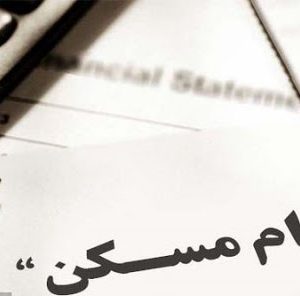 ancial Stateme
ام مسکن “